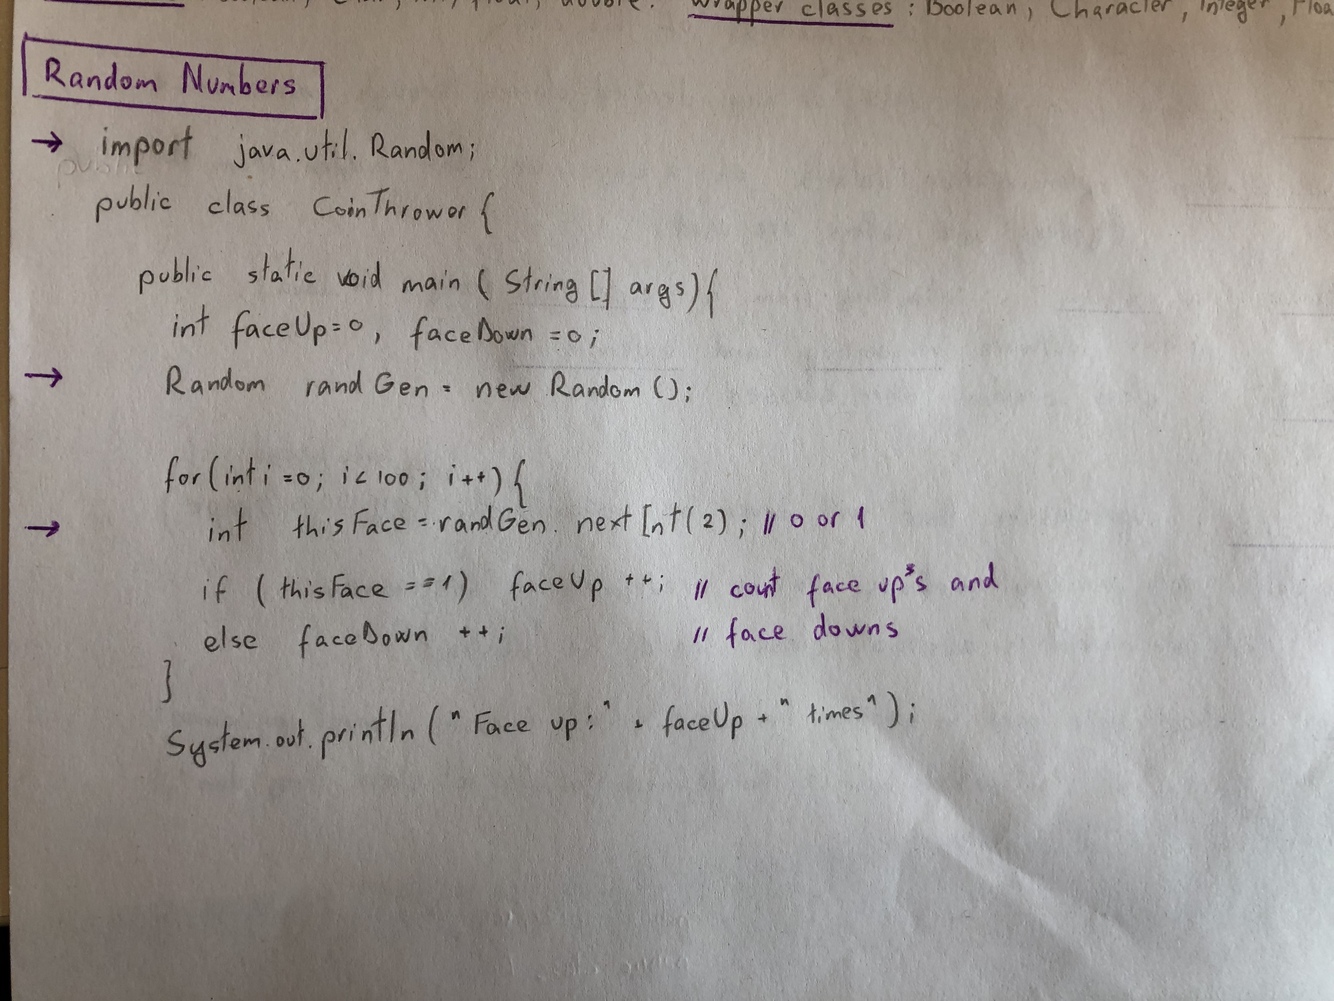 double. Wrapper classes : Boolean, Character, Integer,
Random Numbers
→ import java.util.Random;
public class CoinThrower {
public static void main ( String [] args){
int faceUp=0, faceDown =0;
→ Random randGen = new Random ();
for(int i =0; i< 100; i++) {
→ int thisFace = randGen. nextInt(2); // 0 or 1
if ( thisFace ==1) faceUp ++; // count face up's and
else faceDown ++; // face downs
}
System.out.println (" Face up:" + faceUp + " times" );